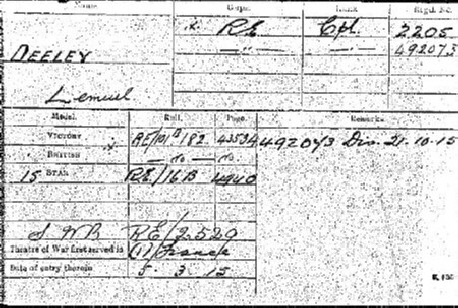 Name. Corps. Rank. Regtl. No.
x R.E. Cpl. 2205
DEELEY —„— —„— 492073
Lemuel
Medal. Roll. Page. Remarks.
VICTORY RE/101 B/182 43534 492073 Dis. 21.10.15
BRITISH x — do — do
15 STAR RE/16 B 4940
S W B RE/2520
Theatre of War first served in (1) France
Date of entry therein 5.3.15